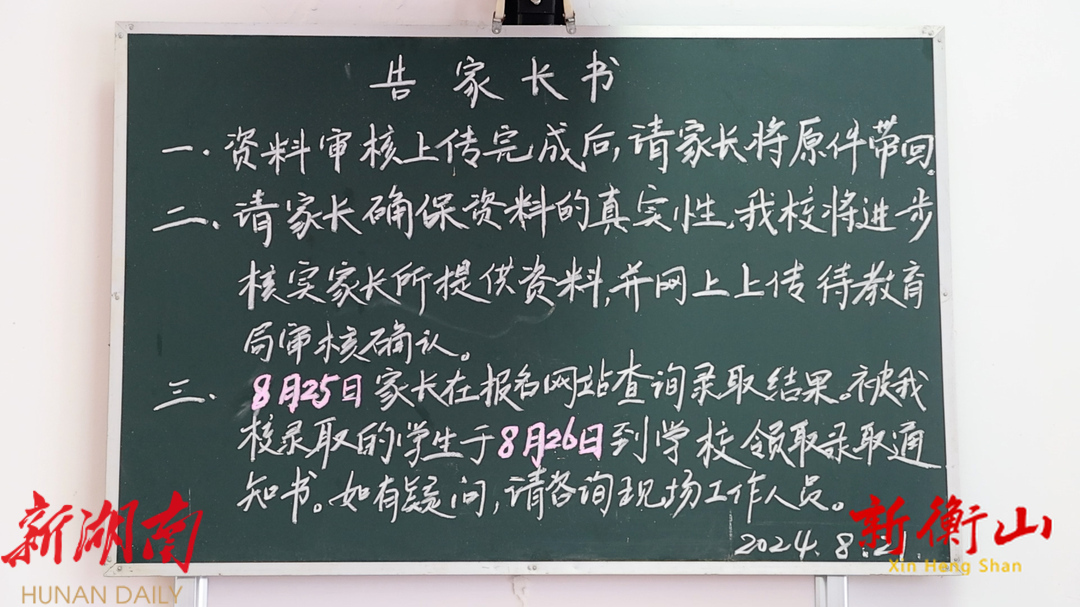 告家长书
一.资料审核上传完成后,请家长将原件带回.
二.请家长确保资料的真实性,我校将进步
核实家长所提供资料,并网上上传待教育
局审核确认。
三.8月25日家长在报名网站查询录取结果。被我
校录取的学生于8月26日到学校领取录取通
知书。如有疑问,请咨询现场工作人员。
2024.8.21
新湖南
HUNAN DAILY
新衡山
Xin Heng Shan